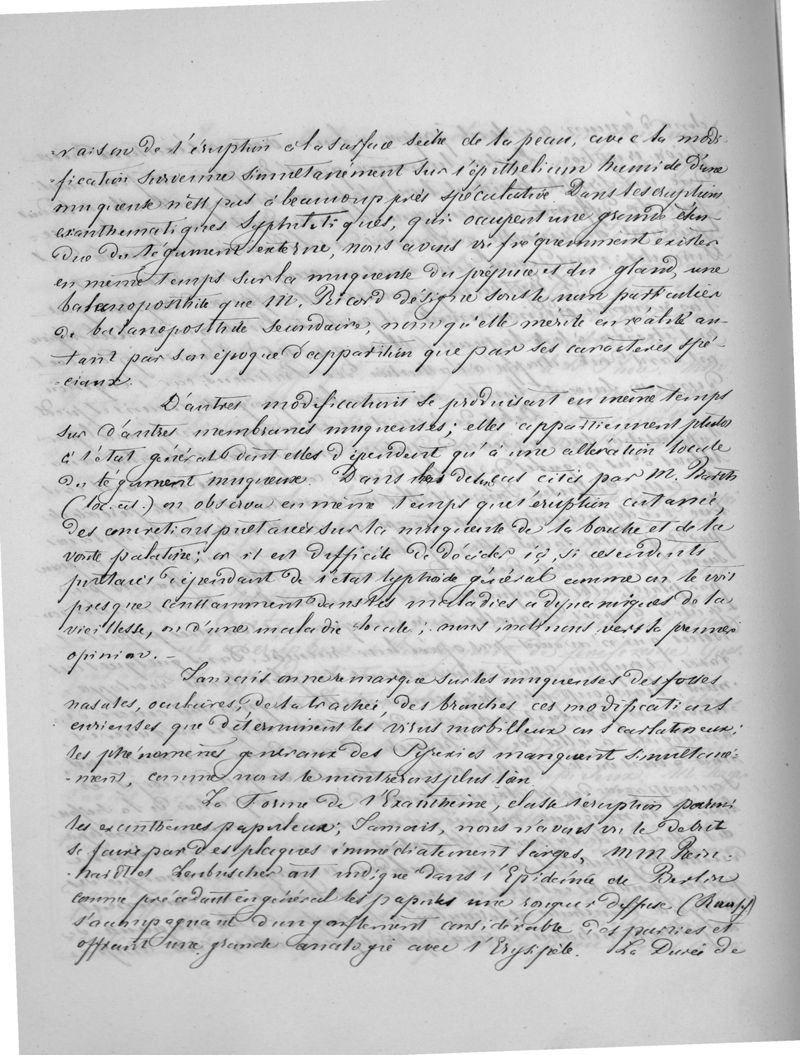 -raison de l'éruption à la surface sèche de la peau, avec la modi-
fication survenue simultanément sur l'épithelium humide d'une
muqueuse n'est pas à beaucoup près spéculative. Dans les éruptions
exanthématiques syphilitiques, qui occupent une grande éten-
due du tégument externe, nous avons vu fréquemment exister
en même temps sur la muqueuse du prépuce et du gland, une
balanoposthite que M. Ricord désigne sous le nom particulier
de balanoposthite secondaire, nom qu'elle mérite en réalité au-
-tant par son époque d'apparition que par ses caractères spé-
-ciaux.
D'autres modifications se produisent en même temps
sur d'autres membranes muqueuses; elles appartiennent plutôt
à l'état général dont elles dépendent qu'à une altération locale
du tégument muqueux. Dans les deux cas cités par M.
(loc. cit.) on observa en même temps que l'éruption cutanée,
des concrétions pultacées sur la muqueuse de la bouche et de la
voute palatine; or il est difficile de décider ici, si ces enduits
pultacés dépendent de l'état typhoïde général comme on le voit
presque constamment dans les maladies adynamiques de la
vieillesse, ou d'une maladie locale; nous inclinons vers la première
opinion. —
Jamais on ne remarque sur les muqueuses des fosses
nasales, oculaires, de la trachée, des bronches ces modifications
curieuses que déterminent les virus morbilleux ou scarlatineux;
les phénomènes généraux des Pyrexies manquent simultané-
-ment, comme nous le montrerons plus loin
La Forme de l'Exanthème, classe l'éruption parmi
les exanthèmes papuleux; Jamais, nous n'avons vu le début
se faire par des plaques immédiatement larges, MM Rein-
hardt et Leubuscher ont indiqué dans l'Epidémie de Berlin
comme précédant en général les papules une rougeur diffuse
s'accompagnant d'un gonflement considérable des parties et
offrant une grande analogie avec l'Erysipèle. La Durée de